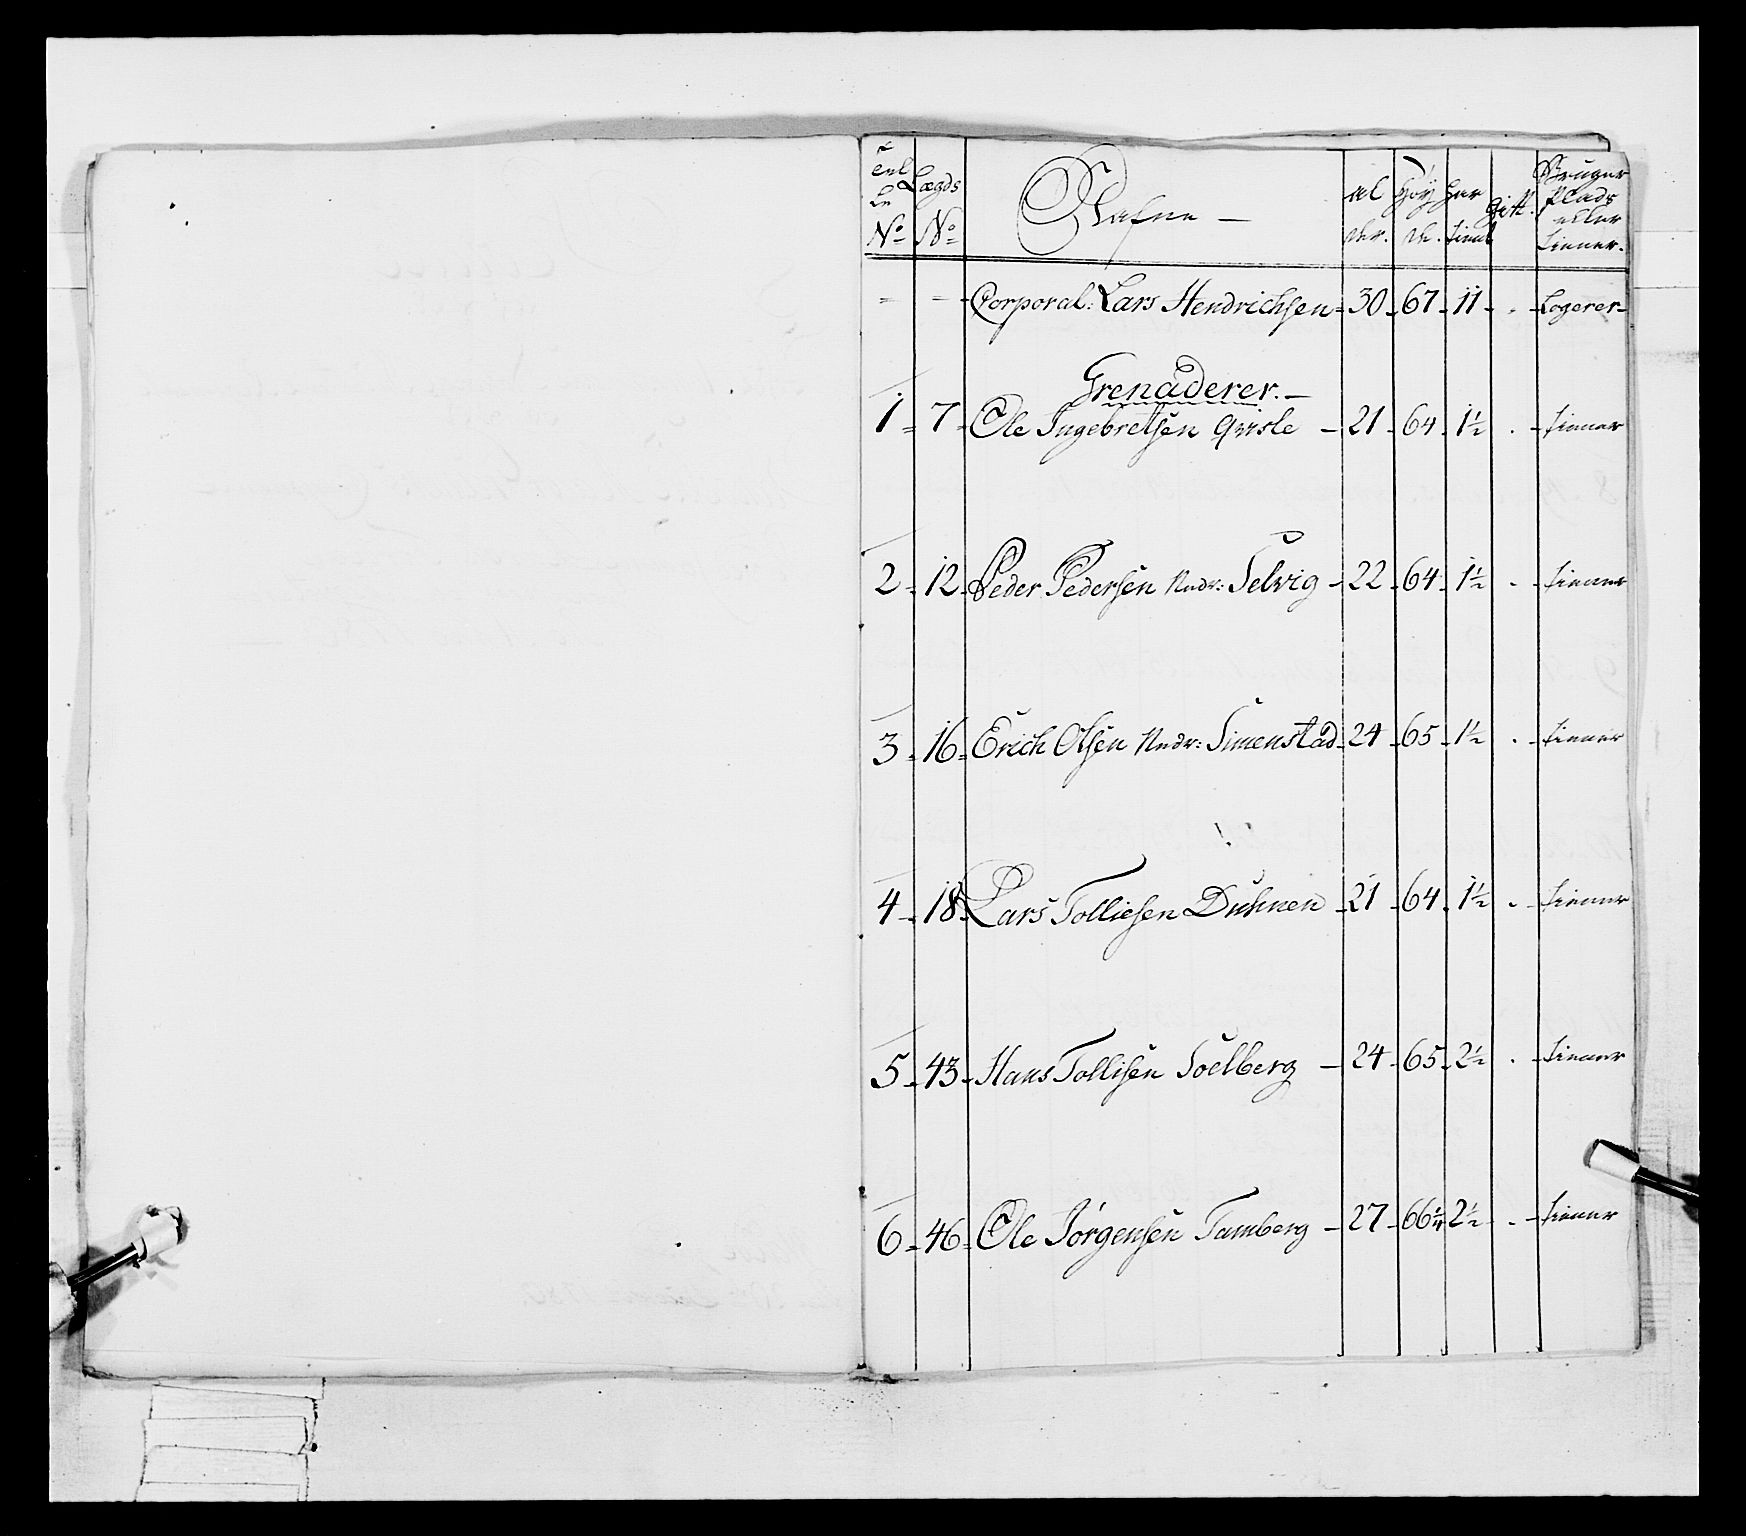 Enl Lægds Nafne — al Høy Har Gift. Bruger
Plads
eller
tienner.
de. tient
No No
= = Corporal: Lars Hendrichsen = 30 - 67 - 11 - - Logerer -
Grenaderer. —
1 = 7 - Ole Ingebretsen Qvisle — 21 - 64 - 1½ - - tienner
2 - 12 - Peder Pedersen Nedr: Selvig - 22 - 64 - 1½ - - tienner
3 - 16 = Erich Olsen Nedr: Simenstad - 24 - 65 - 1½ - - tienner
4 - 18 - Lars Tolliefsen Duhnen - 21 - 64 - 1½ - - tienner
5 - 43 - Hans Tollisen Soelberg — 24 - 65 - 2½ - - tienner
6 - 46 - Ole Jörgensen Tamberg - 27 - 66¼ 2½ - - tienner